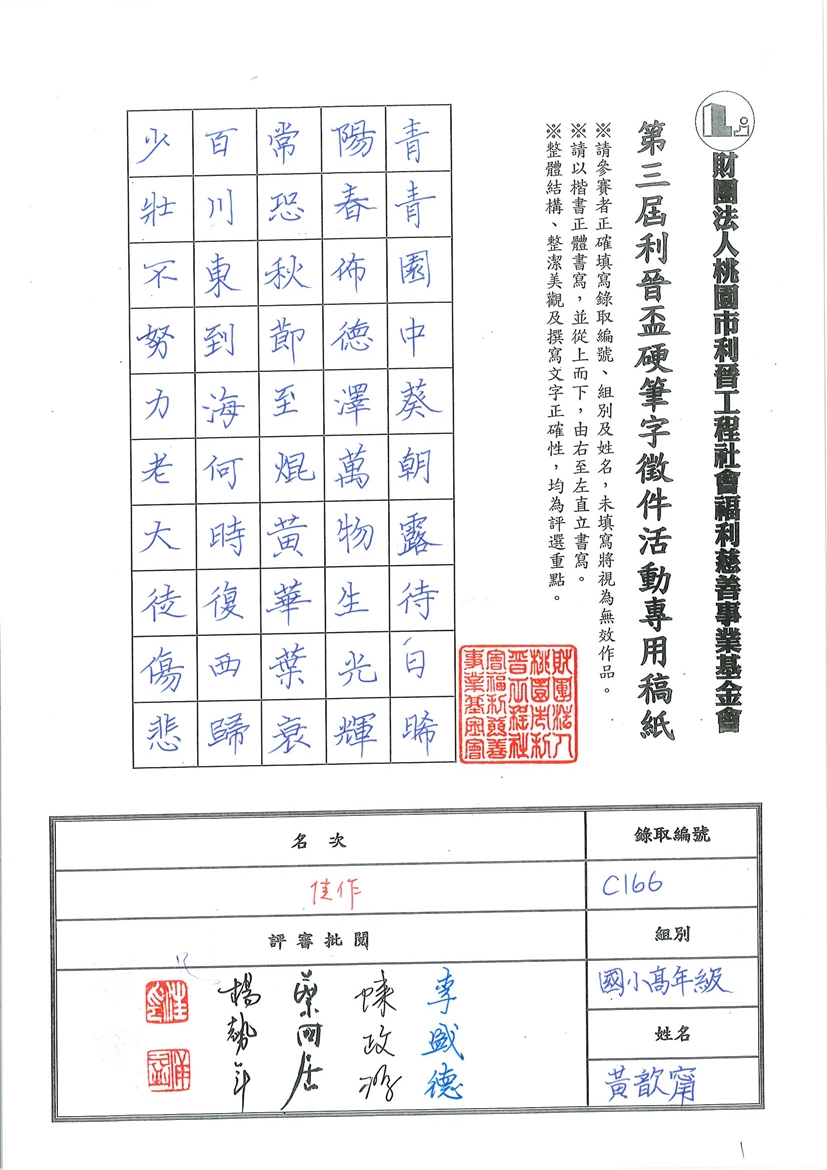 財團法人桃園市利晉工程社會福利慈善事業基金會
第三屆利晉盃硬筆字徵件活動專用稿紙
※請參賽者正確填寫錄取編號、組別及姓名，未填寫將視為無效作品。
※請以楷書正體書寫，並從上而下，由右至左直立書寫。
※整體結構、整潔美觀及撰寫文字正確性，均為評選重點。
財團法人
桃園市利
晉工程社
會福利慈善
事業基金會
青青園中葵朝露待日晞
陽春佈德澤萬物生光輝
常恐秋節至焜黃華葉衰
百川東到海何時復西歸
少壯不努力老大徒傷悲
錄取編號
C166
組別
國小高年級
姓名
黃歆甯
名次
佳作
評審批閱
李盛德
蔡國居
楊勢年
1